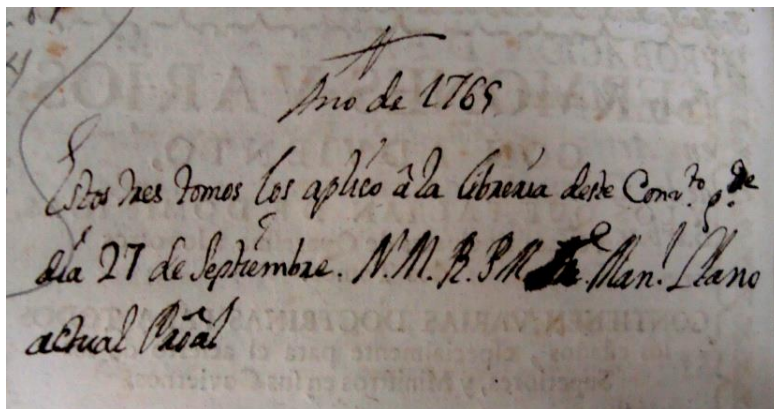 Año de 1765
Estos tres tomos los aplicó â la libreria deste Conv.to
dia 27 de Septiembre. N. M. R. P. M. Man.l Llano
actual Proâl